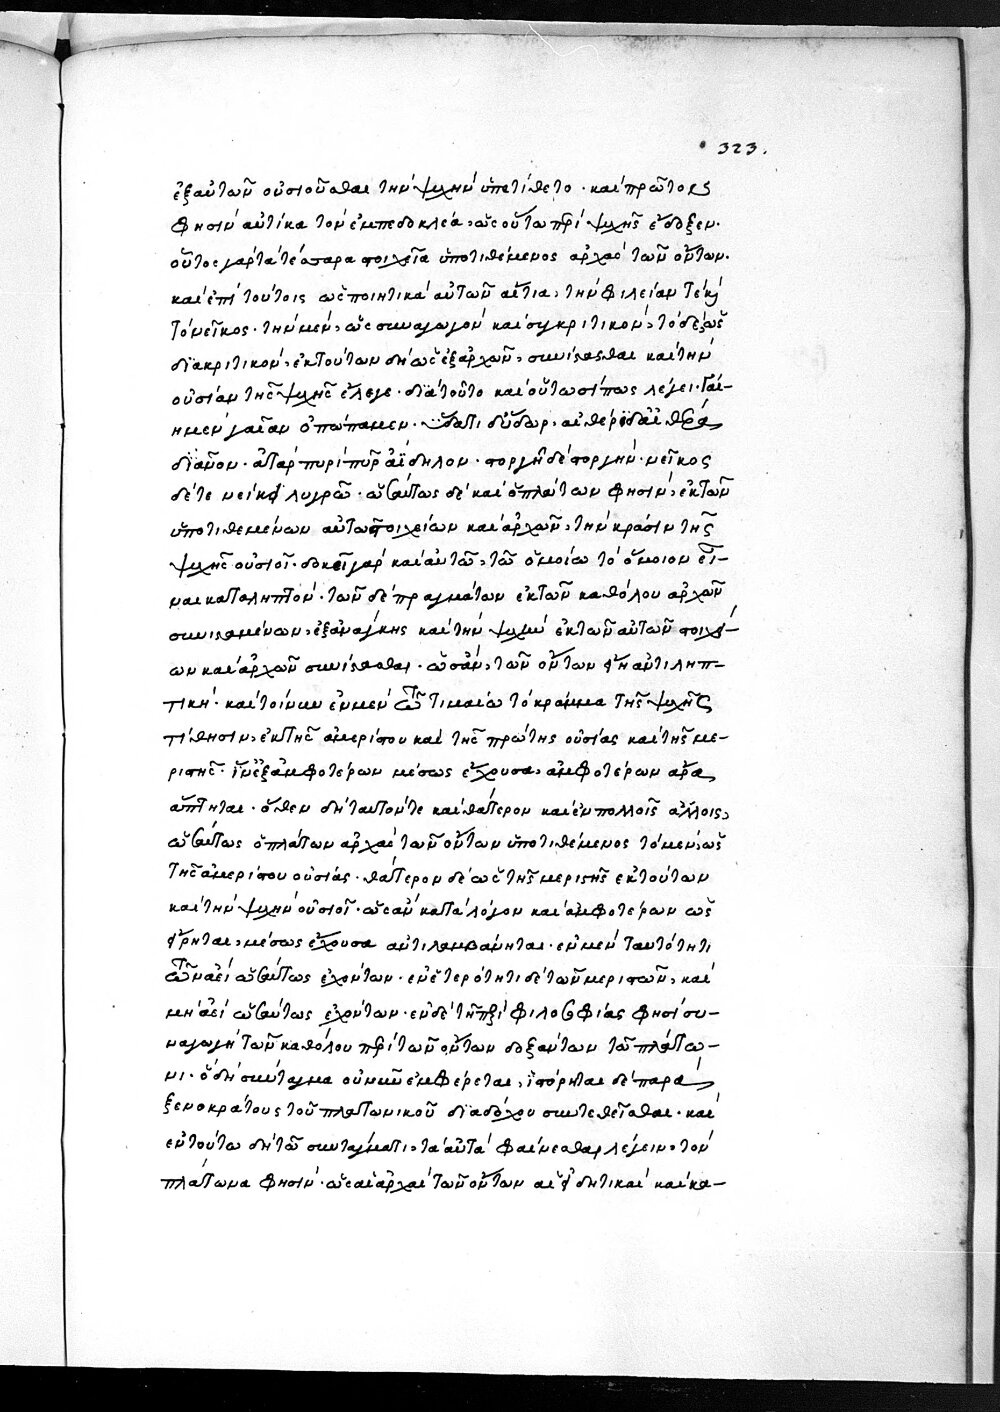 323.
ἐξ αὐτῶν οὐσιοῦσθαι τὴν ψυχὴν ὑπετίθετο · καὶ πρῶτον
φησὶν αὐτίκα τὸν ἐμπεδοκλέα, ὡς οὕτω περὶ ψυχῆς ἔδοξεν ·
οὗτος γὰρ τὰ τέσσαρα στοιχεῖα ὑποτιθέμενος ἀρχὰς τῶν ὄντων ·
καὶ ἐπὶ τούτοις ὡς ποιητικὰ αὐτῶν αἴτια, τὴν φιλείαν τὲ καὶ
τὸ νεῖκος · τὴν μὲν, ὡς συναγωγὸν καὶ συγκριτικὸν, τὸ δὲ, ὡς
διακριτικὸν, ἐκ τούτων δὴ ὡς ἐξ ἀρχῶν, συνίστασθαι καὶ τὴν
οὐσίαν τῆς ψυχῆς ἔλεγε · διὰ τοῦτο καὶ οὕτωσί πως λέγει · Γαί-
η μὲν γαῖαν ὀπώπαμεν · ὕδατι δ' ὕδωρ, αἰθέρι δ' αἰθέρα
δῖαν ον · ἀτὰρ πυρὶ πῦρ ἀΐδηλον · στοργῇ δὲ στοργὴν · νεῖκος
δέ τε νείκεϊ λυγρῶ · ὡσαύτως δὲ καὶ ὁ πλάτων φησὶν, ἐκ τῶν
ὑποτιθεμένων αὐτῶ στοιχείων καὶ ἀρχῶν, τὴν κράσιν τῆς
ψυχῆς οὐσιοῖ · δοκεῖ γὰρ καὶ αὐτῶ, τῶ ὁμοίω τὸ ὅμοιον εἶ-
ναι καταληπτὸν · τῶν δὲ πραγμάτων ἐκ τῶν καθόλου ἀρχῶν
συνισταμένων, ἐξανάγκης καὶ τὴν ψυχὴν ἐκ τῶν αὐτῶν στοιχεί-
ων καὶ ἀρχῶν συνίστασθαι · ὡς ἂν, τῶν ὄντων εἴη ἀντιληπ-
τική · καὶ τοίνυν ἐν μὲν τῶ τιμαίω τὸ κράμμα τῆς ψυχῆς
τίθησιν, ἐκ τῆς ἀμερίστου καὶ τῆς πρώτης οὐσίας καὶ τῆς με-
ριστῆς · ἵν' ἐξ ἀμφοτέρων μέσως ἔχουσα, ἀμφοτέρων ἄρα
ἅπτηται · ὅθεν δὴ ταυτόν τε καὶ θάτερον καὶ ἐν πολλοῖς ἄλλοις,
ὡσαύτως ὁ πλάτων ἀρχὰς τῶν ὄντων ὑποτιθέμενος τὸ μὲν, ὡς
τῆς ἀμερίστου οὐσίας · θάτερον δὲ ὡς τῆς μεριστῆς ἐκ τούτων
καὶ τὴν ψυχὴν οὐσιοῖ · ὡς ἂν κατὰ λόγον καὶ ἀμφοτέρων ὡς
εἴρηται, μέσως ἔχουσα ἀντιλαμβάνηται · ἐν μὲν ταυτότητι
τῶν ἀεὶ ὡσαύτως ἐχόντων · ἐν ἑτερότητι δὲ τῶν μεριστῶν, καὶ
μὴ ἀεὶ ὡσαύτως ἐχόντων · ἐν δὲ τῆ περὶ φιλοσοφίας φησὶ συ-
ναγωγῆ τῶν καθόλου περὶ τῶν ὄντων δοξάντων τῶ πλάτω-
νι · ὃ δὴ σύνταγμα οὐ νῦν ἐμφέρεται, ἱστόρηται δὲ παρὰ
ξενοκράτους τοῦ πλατωνικοῦ διαδόχου συντεθεῖσθαι · καὶ
ἐν τούτω δὴ τῶ συντάγματι, τὰ αὐτὰ φαίνεσθαι λέγειν, τὸν
πλάτωνα φησὶν · ὡς αἱ ἀρχαὶ τῶν ὄντων αἱ εἰδητικαὶ καὶ κα-